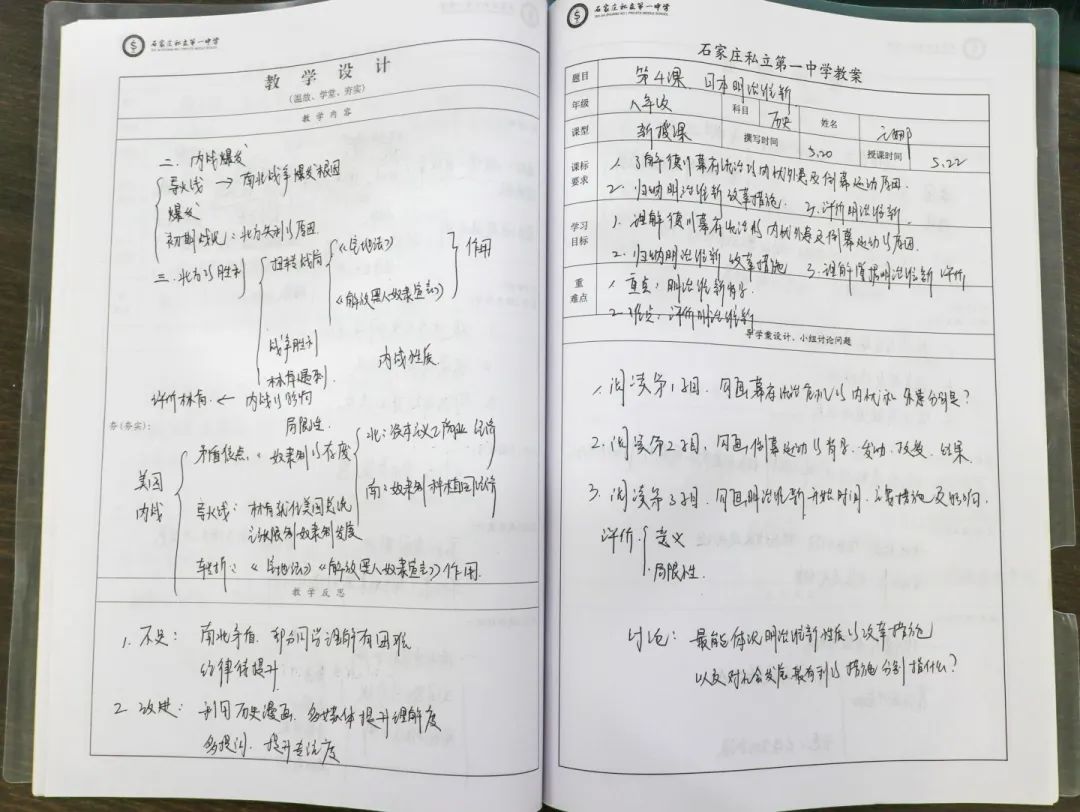 石家庄私立第一中学
教 学 设 计
(温故、学堂、夯实)
教 学 内 容
二. 内战爆发
导火线 → 南北战争爆发根因
爆发
初期战况: 北方失利的原因.
三. 北方的胜利
扭转战局
《宅地法》
《解放黑人奴隶宣言》
作用
战争胜利
林肯遇刺.
内战性质.
评价林肯. ← 内战的影响
局限性.
夯(夯实):
美国
内战
矛盾焦点: 奴隶制的存废
北: 资本主义工商业经济
南: 奴隶制种植园经济
导火线: 林肯就任美国总统
主张限制奴隶制发展
转折: 《宅地法》《解放黑人奴隶宣言》作用.
教 学 反 思
1. 不足: 南北矛盾. 部分同学理解有困难
纪律待提升.
2. 改进: 利用历史漫画. 多媒体提升理解度
多提问. 提升专注度
石家庄私立第一中学
石家庄私立第一中学教案
题目 第4课. 日本明治维新
年级 八年级 科目 历史 姓名
课型 新授课 撰写时间 5.20 授课时间 5.22
课标
要求
1. 了解德川幕府统治的内忧外患及倒幕运动原因.
2. 归纳明治维新改革措施. 3. 评价明治维新.
学习
目标
1. 理解德川幕府统治的内忧外患及倒幕运动的原因.
2. 归纳明治维新改革措施 3. 理解掌握明治维新评价
重
难点
1. 重点: 明治维新背景.
2. 难点: 评价明治维新
导学案设计、小组讨论问题
1. 阅读第1子目. 勾画幕府统治危机的内忧和外患分别是?
2. 阅读第2子目, 勾画倒幕运动的背景. 发动. 改变. 结果
3. 阅读第3子目. 勾画明治维新开始时间. 主要措施及影响.
评价.
意义
局限性.
讨论: 最能体现明治维新性质的改革措施
以及对社会发展最有利的措施分别指什么?